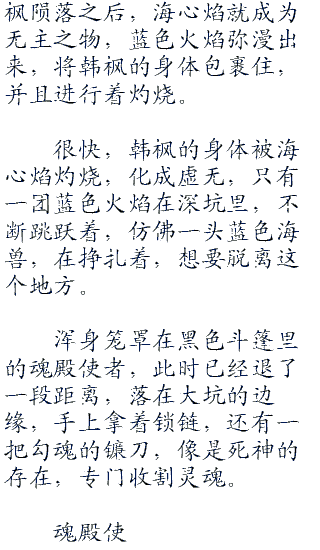 枫陨落之后，海心焰就成为
无主之物，蓝色火焰弥漫出
来，将韩枫的身体包裹住，
并且进行着灼烧。
很快，韩枫的身体被海
心焰灼烧，化成虚无，只有
一团蓝色火焰在深坑里，不
断跳跃着，仿佛一头蓝色海
兽，在挣扎着，想要脱离这
个地方。
浑身笼罩在黑色斗篷里
的魂殿使者，此时已经退了
一段距离，落在大坑的边
缘，手上拿着锁链，还有一
把勾魂的镰刀，像是死神的
存在，专门收割灵魂。
魂殿使